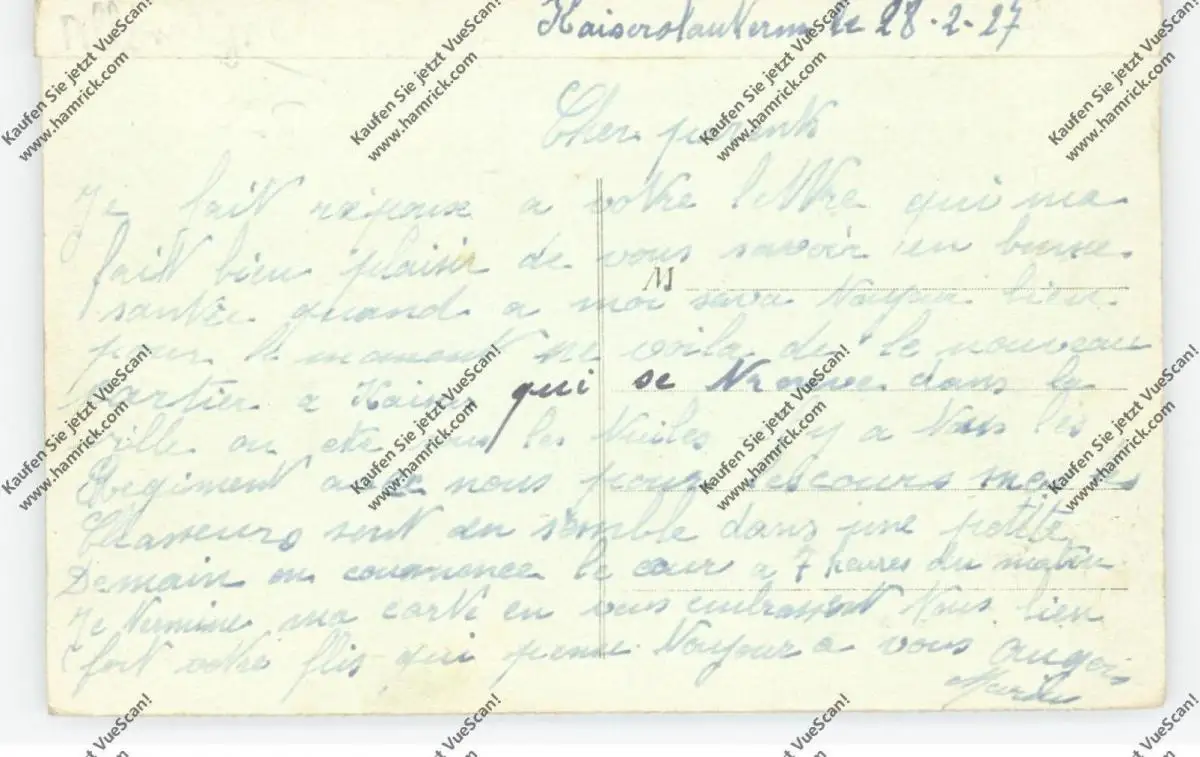 Kaiserslautern le 28-2-27
Cher parents
Je fait reponse a votre lettre qui ma
fait bien plaisir de vous savoir en bonne
M
santée quand a moi sava toujour bien
pour le moment me voila de le nouveau
cartier a Kaiser qui se trouve dans la
ville on ete les y a tous les
Regiment avec nous pour les cours mais les
Chasseurs sont en semble dans une petite
Demain on commence le cour a 7 heures du matin
Je termine ma carte en vous embrassent tous bien
fort votre flis qui pense toujour a vous
Kaufen Sie jetzt VueScan!
www.hamrick.com